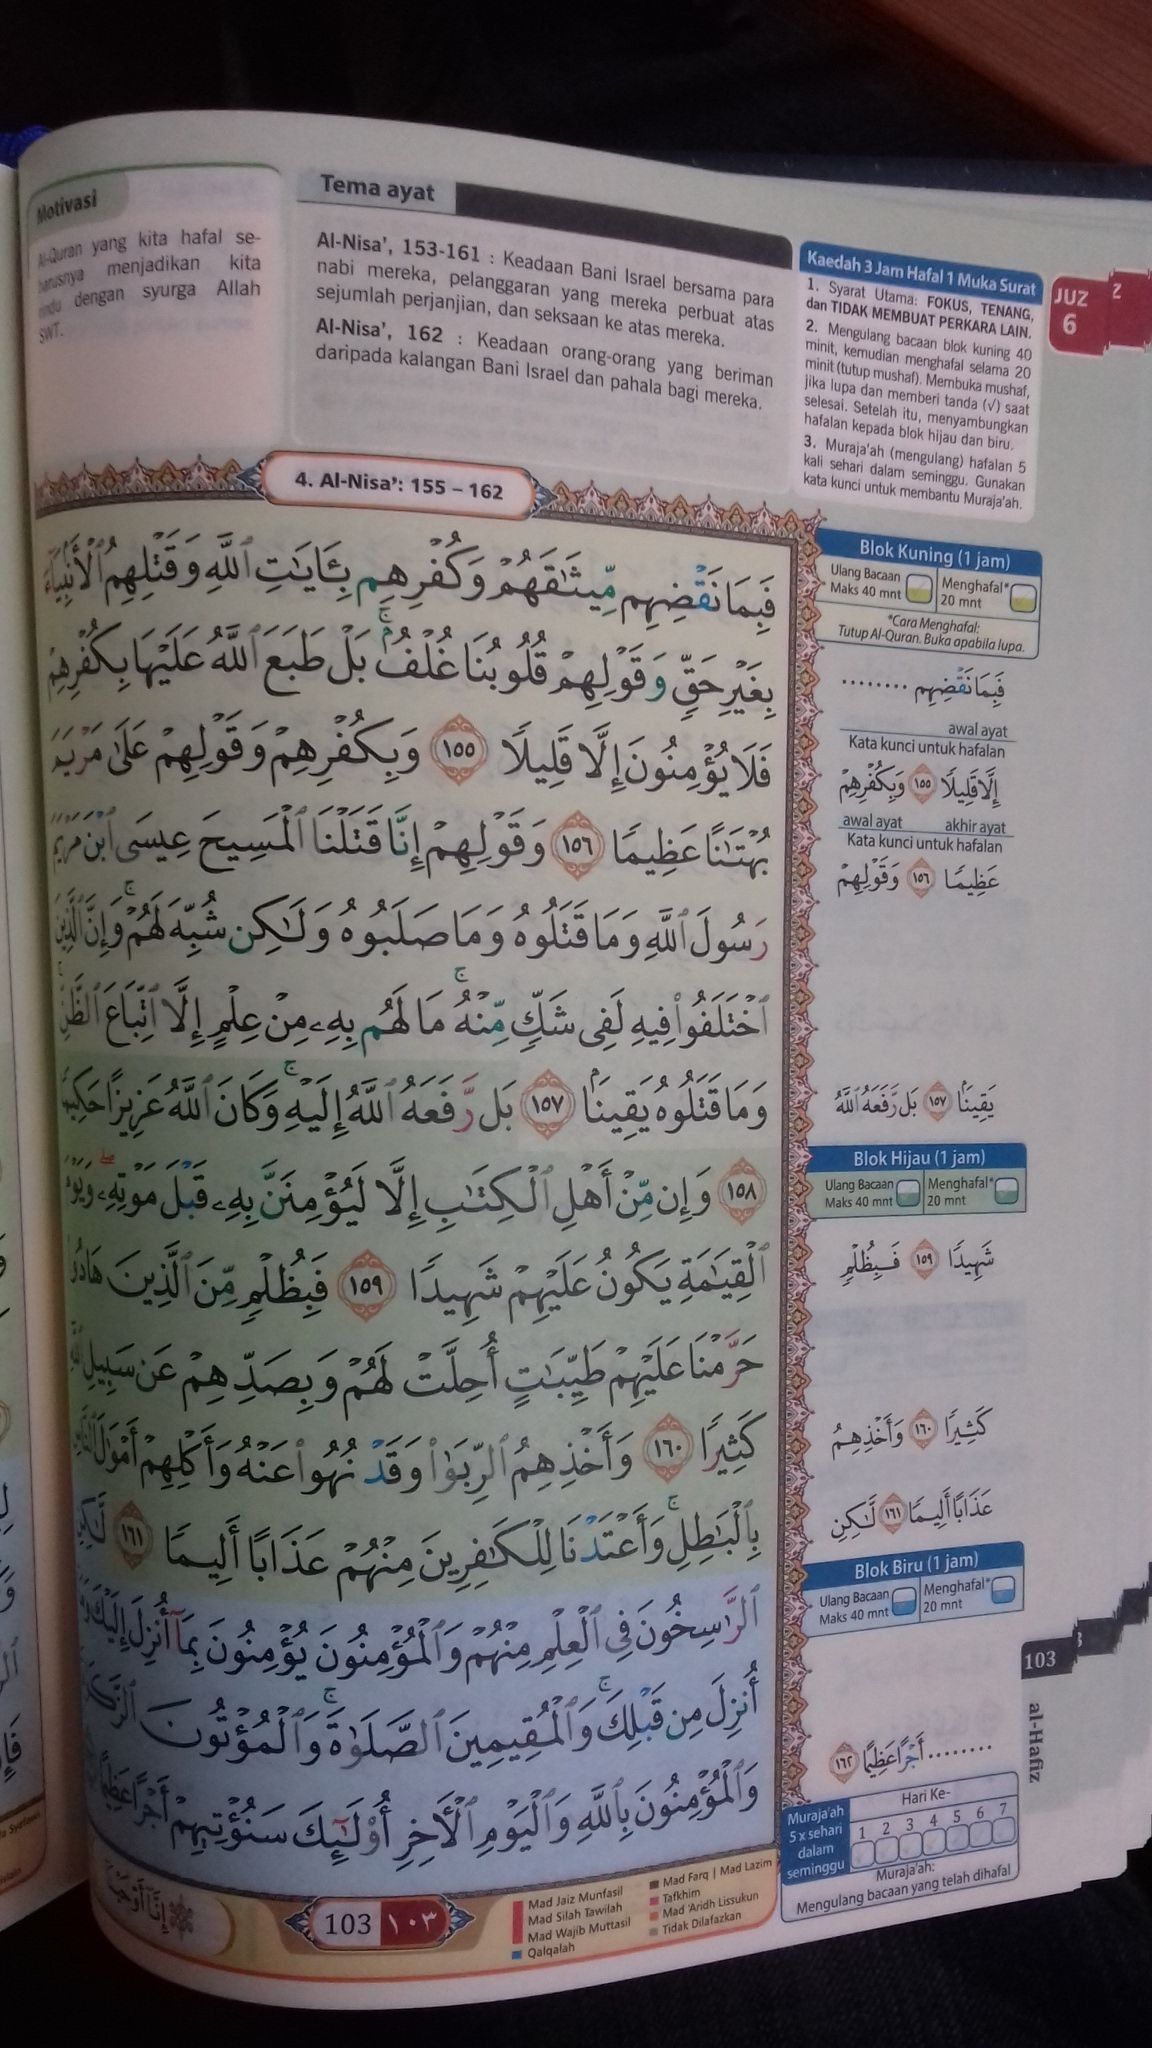 Motivasi
Al-Quran yang kita hafal se-
harusnya menjadikan kita
rindu dengan syurga Allah
SWT.
Tema ayat
Al-Nisa', 153-161 : Keadaan Bani Israel bersama para
nabi mereka, pelanggaran yang mereka perbuat atas
sejumlah perjanjian, dan seksaan ke atas mereka.
Al-Nisa', 162 : Keadaan orang-orang yang beriman
daripada kalangan Bani Israel dan pahala bagi mereka.
Kaedah 3 Jam Hafal 1 Muka Surat
1. Syarat Utama: FOKUS, TENANG,
dan TIDAK MEMBUAT PERKARA LAIN.
2. Mengulang bacaan blok kuning 40
minit, kemudian menghafal selama 20
minit (tutup mushaf). Membuka mushaf,
jika lupa dan memberi tanda (√) saat
selesai. Setelah itu, menyambungkan
hafalan kepada blok hijau dan biru.
3. Muraja'ah (mengulang) hafalan 5
kali sehari dalam seminggu. Gunakan
kata kunci untuk membantu Muraja'ah.
JUZ
6
4. Al-Nisa': 155 – 162
فَبِمَا نَقْضِهِم مِّيثَٰقَهُمْ وَكُفْرِهِم بِـَٔايَٰتِ ٱللَّهِ وَقَتْلِهِمُ ٱلْأَنۢبِيَآءَ
بِغَيْرِ حَقٍّ وَقَوْلِهِمْ قُلُوبُنَا غُلْفٌۢ ۚ بَلْ طَبَعَ ٱللَّهُ عَلَيْهَا بِكُفْرِهِمْ
فَلَا يُؤْمِنُونَ إِلَّا قَلِيلًا ١٥٥ وَبِكُفْرِهِمْ وَقَوْلِهِمْ عَلَىٰ مَرْيَمَ
بُهْتَٰنًا عَظِيمًا ١٥٦ وَقَوْلِهِمْ إِنَّا قَتَلْنَا ٱلْمَسِيحَ عِيسَى ٱبْنَ مَرْيَمَ
رَسُولَ ٱللَّهِ وَمَا قَتَلُوهُ وَمَا صَلَبُوهُ وَلَٰكِن شُبِّهَ لَهُمْ ۚ وَإِنَّ ٱلَّذِينَ
ٱخْتَلَفُوا۟ فِيهِ لَفِى شَكٍّ مِّنْهُ ۚ مَا لَهُم بِهِۦ مِنْ عِلْمٍ إِلَّا ٱتِّبَاعَ ٱلظَّنِّ ۚ
وَمَا قَتَلُوهُ يَقِينًۢا ١٥٧ بَل رَّفَعَهُ ٱللَّهُ إِلَيْهِ ۚ وَكَانَ ٱللَّهُ عَزِيزًا حَكِيمًا
١٥٨ وَإِن مِّنْ أَهْلِ ٱلْكِتَٰبِ إِلَّا لَيُؤْمِنَنَّ بِهِۦ قَبْلَ مَوْتِهِۦ ۖ وَيَوْمَ
ٱلْقِيَٰمَةِ يَكُونُ عَلَيْهِمْ شَهِيدًا ١٥٩ فَبِظُلْمٍ مِّنَ ٱلَّذِينَ هَادُوا۟
حَرَّمْنَا عَلَيْهِمْ طَيِّبَٰتٍ أُحِلَّتْ لَهُمْ وَبِصَدِّهِمْ عَن سَبِيلِ ٱللَّهِ
كَثِيرًا ١٦٠ وَأَخْذِهِمُ ٱلرِّبَوٰا۟ وَقَدْ نُهُوا۟ عَنْهُ وَأَكْلِهِمْ أَمْوَٰلَ ٱلنَّاسِ
بِٱلْبَٰطِلِ ۚ وَأَعْتَدْنَا لِلْكَٰفِرِينَ مِنْهُمْ عَذَابًا أَلِيمًا ١٦١ لَّٰكِنِ
ٱلرَّٰسِخُونَ فِى ٱلْعِلْمِ مِنْهُمْ وَٱلْمُؤْمِنُونَ يُؤْمِنُونَ بِمَآ أُنزِلَ إِلَيْكَ وَمَآ
أُنزِلَ مِن قَبْلِكَ ۚ وَٱلْمُقِيمِينَ ٱلصَّلَوٰةَ ۚ وَٱلْمُؤْتُونَ ٱلزَّكَوٰةَ
وَٱلْمُؤْمِنُونَ بِٱللَّهِ وَٱلْيَوْمِ ٱلْأَخِرِ أُو۟لَٰٓئِكَ سَنُؤْتِيهِمْ أَجْرًا عَظِيمًا
Blok Kuning (1 jam)
Ulang Bacaan
Maks 40 mnt
Menghafal*
20 mnt
*Cara Menghafal:
Tutup Al-Quran. Buka apabila lupa.
فَبِمَا نَقْضِهِم ........
awal ayat
Kata kunci untuk hafalan
إِلَّا قَلِيلًا ١٥٥ وَبِكُفْرِهِمْ
awal ayat akhir ayat
Kata kunci untuk hafalan
عَظِيمًا ١٥٦ وَقَوْلِهِمْ
يَقِينًۢا ١٥٧ بَل رَّفَعَهُ ٱللَّهُ
Blok Hijau (1 jam)
Ulang Bacaan
Maks 40 mnt
Menghafal*
20 mnt
شَهِيدًا ١٥٩ فَبِظُلْمٍ
كَثِيرًا ١٦٠ وَأَخْذِهِمُ
عَذَابًا أَلِيمًا ١٦١ لَّٰكِنِ
Blok Biru (1 jam)
Ulang Bacaan
Maks 40 mnt
Menghafal*
20 mnt
........ أَجْرًا عَظِيمًا ١٦٢
Muraja'ah
5 x sehari
dalam
seminggu
Hari Ke-
1 2 3 4 5 6 7
Muraja'ah:
Mengulang bacaan yang telah dihafal
103
al-Hafiz
103 ١٠٣
Mad Jaiz Munfasil
Mad Silah Tawilah
Mad Wajib Muttasil
Qalqalah
Mad Farq | Mad Lazim
Tafkhim
Mad 'Aridh Lissukun
Tidak Dilafazkan